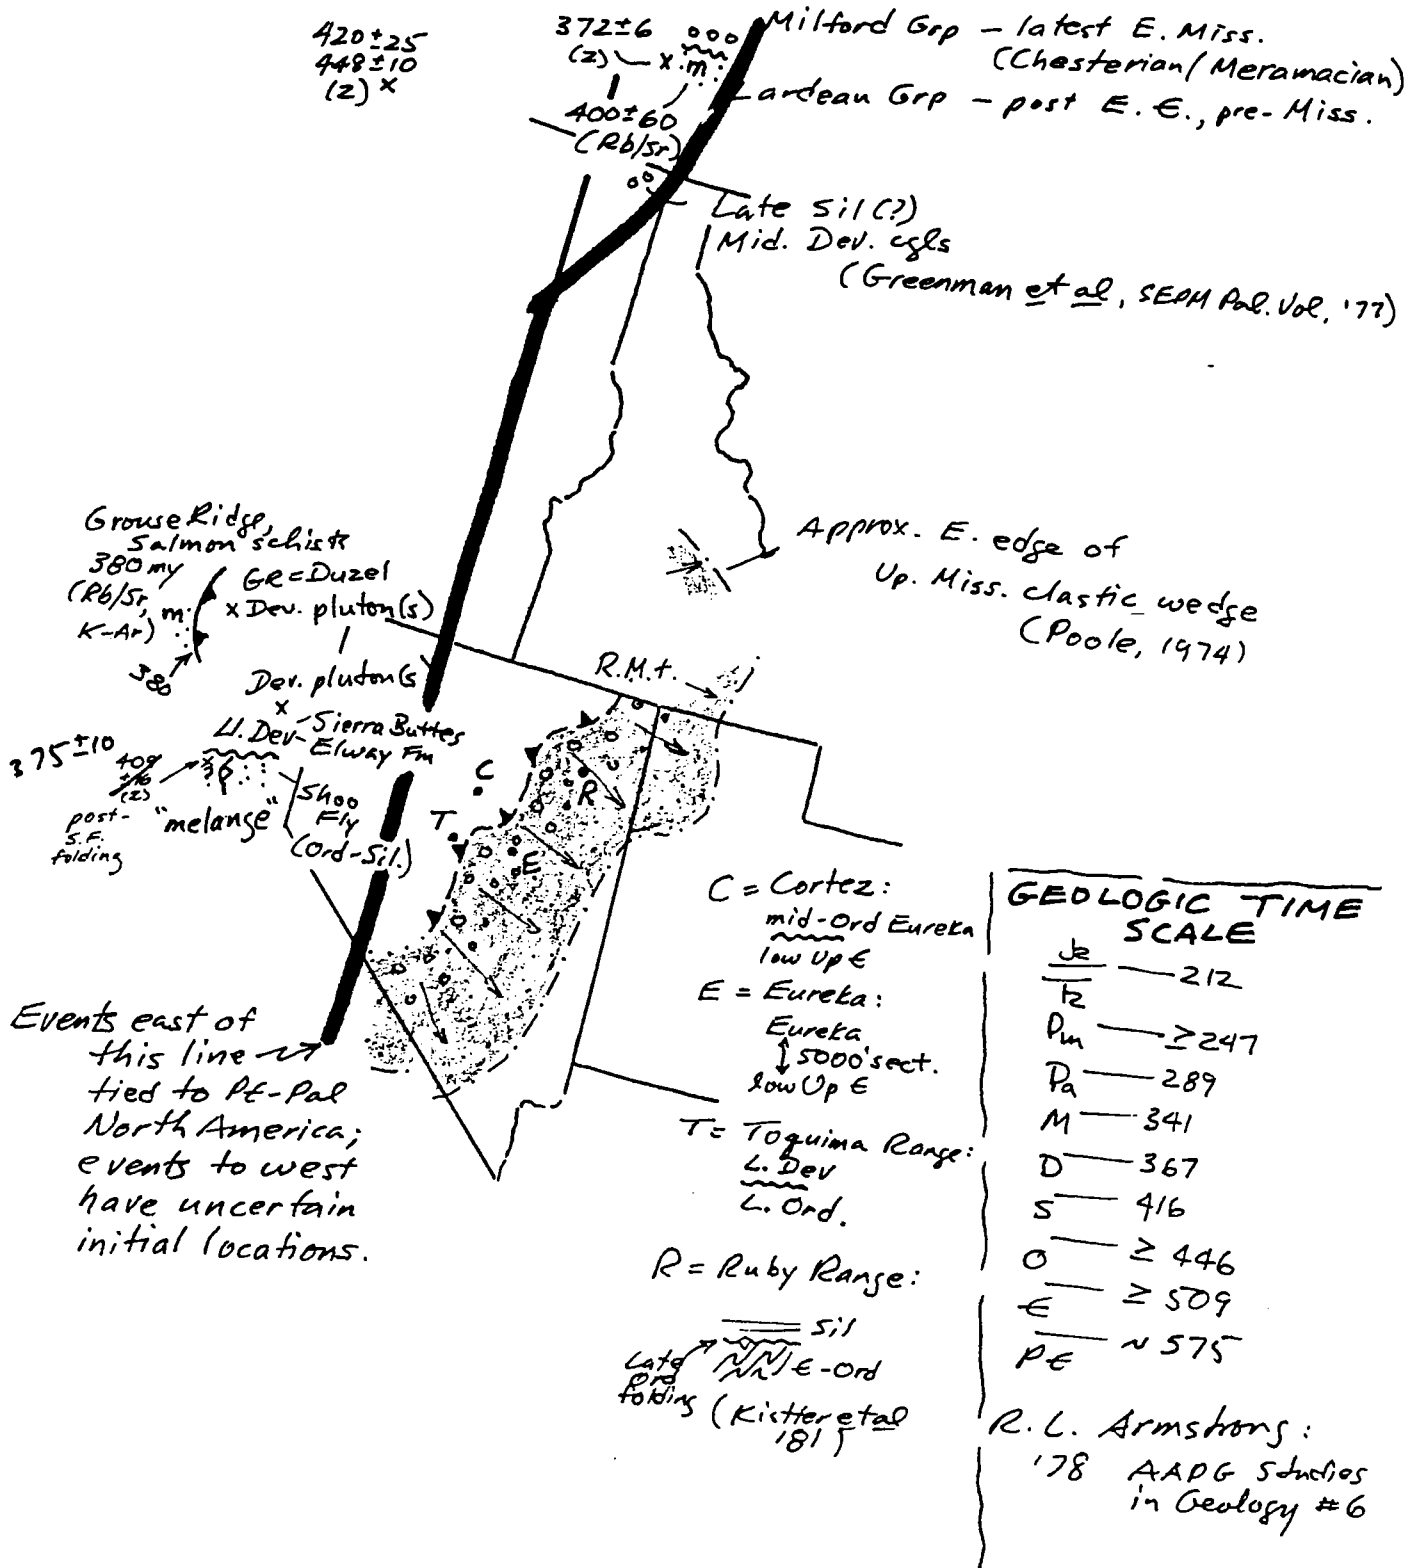 420±25
448±10
(z) x
372±6
(z) x m
400±60
(Rb/Sr)
Milford Grp – latest E. Miss.
(Chesterian/Meramacian)
Lardeau Grp – post E. Є., pre-Miss.
Late Sil(?)
Mid. Dev. cgls
(Greenman et al, SEPM Pal. Vol, '77)
Approx. E. edge of
Up. Miss. clastic wedge
(Poole, 1974)
Grouse Ridge,
Salmon schists
380 my
(Rb/Sr,
K-Ar)
m
380
GR = Duzel
x Dev. pluton(s)
Dev. pluton(s
x
U. Dev – Sierra Buttes
Elwav Fm
375±10
409
±16
(z)
post-
S.F.
folding
"melange"
Shoo
Fly
(Ord-Sil.)
R.M.t.
C
T
R
E
Events east of
this line →
tied to PЄ-Pal
North America;
events to west
have uncertain
initial locations.
C = Cortez:
mid-Ord Eureka
low Up Є
E = Eureka:
Eureka
↕ 5000' sect.
low Up Є
T = Toquima Range:
L. Dev
L. Ord.
R = Ruby Range:
Sil
Є-Ord
Late
Ord
folding
(Kistler et al
'81)
GEOLOGIC TIME
SCALE
Jr — 212
Tr
Pm — ≥247
Pa — 289
M — 341
D — 367
S — 416
O — ≥ 446
Є — ≥ 509
PЄ — ~ 575
R.L. Armstrong:
'78 AAPG Studies
in Geology #6